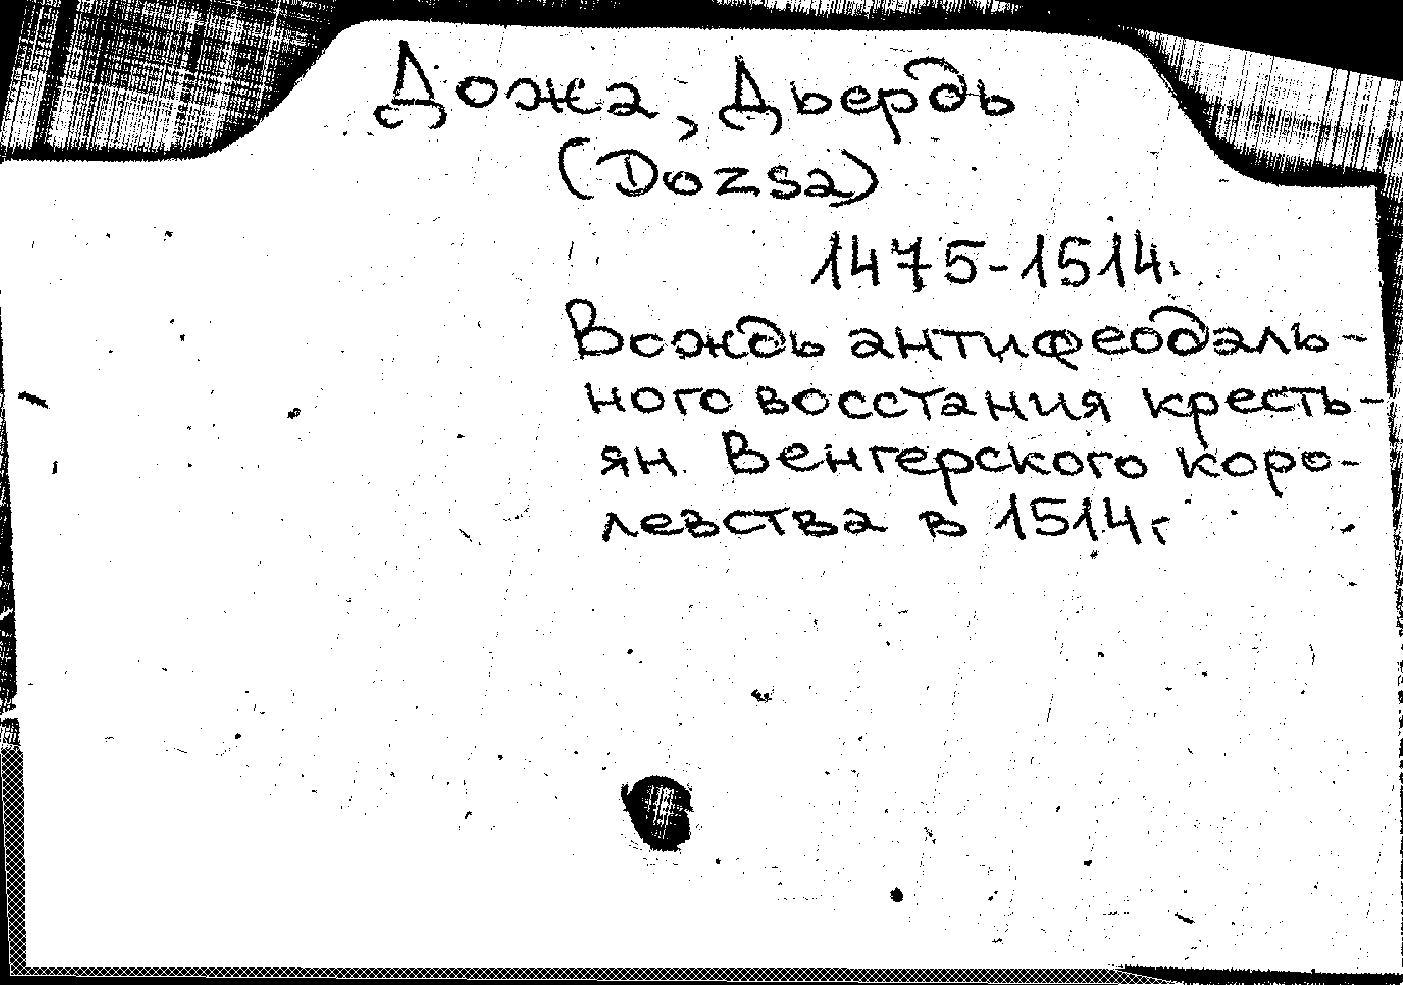 Дожа, Дьердь
(Dozsa)
1475-1514.
Вождь антифеодаль-
ного восстания кресть-
ян Венгерского коро-
левства в 1514г